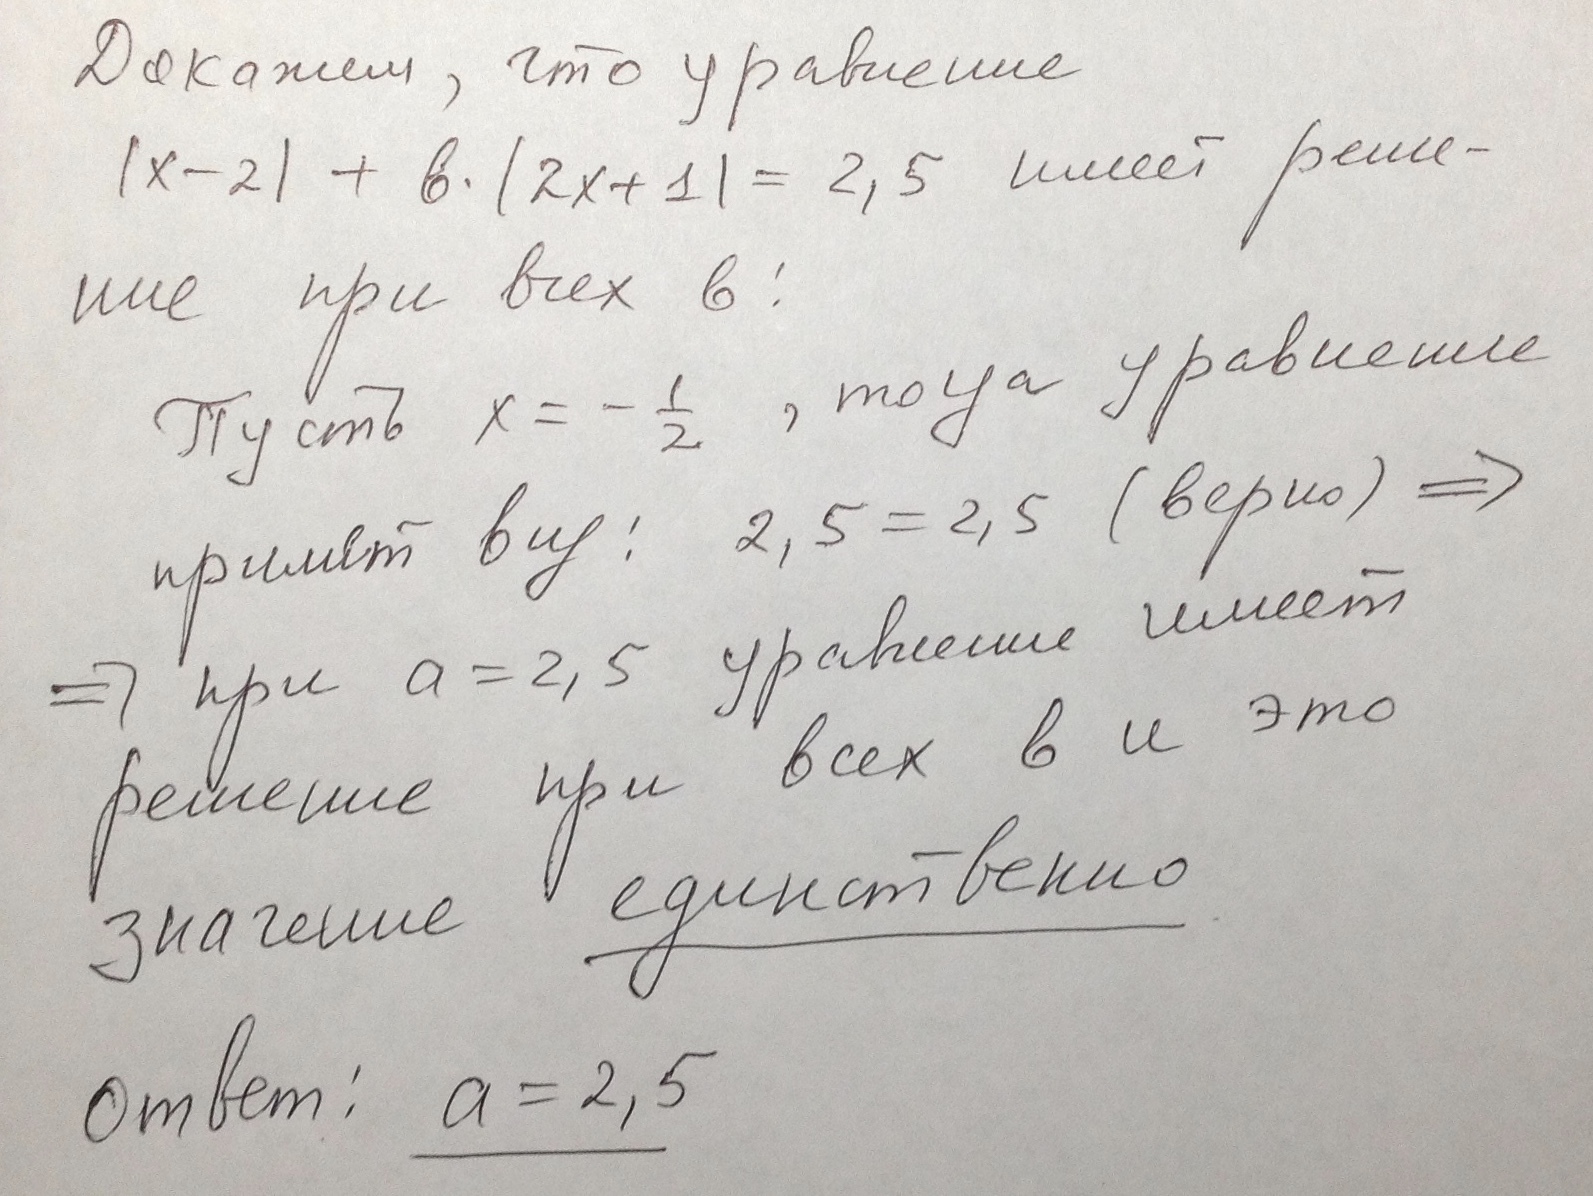 Докажем, что уравнение
|x-2| + в·|2x+1| = 2,5 имеет реше-
ние при всех в:
Пусть x = -1/2, тогда уравнение
примет вид: 2,5 = 2,5 (верно) ⇒
⇒ при a = 2,5 уравнение имеет
решение при всех в и это
значение единственно
Ответ: a = 2,5